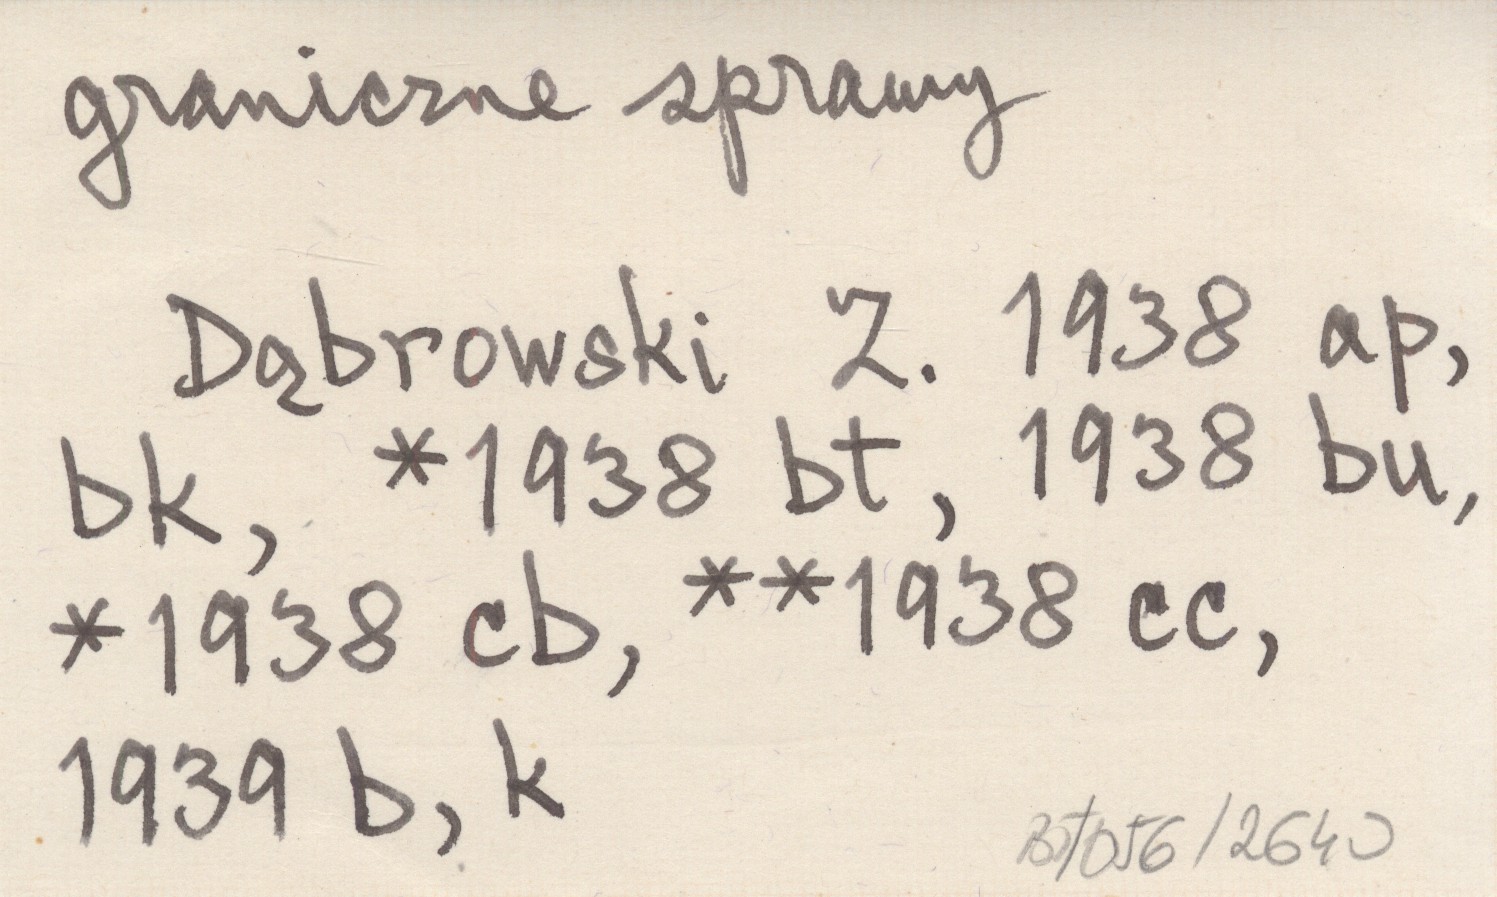 graniczne sprawy
Dąbrowski Z. 1938 ap,
bk, *1938 bt, 1938 bu,
*1938 cb, **1938 cc,
1939 b, k
/056/2640